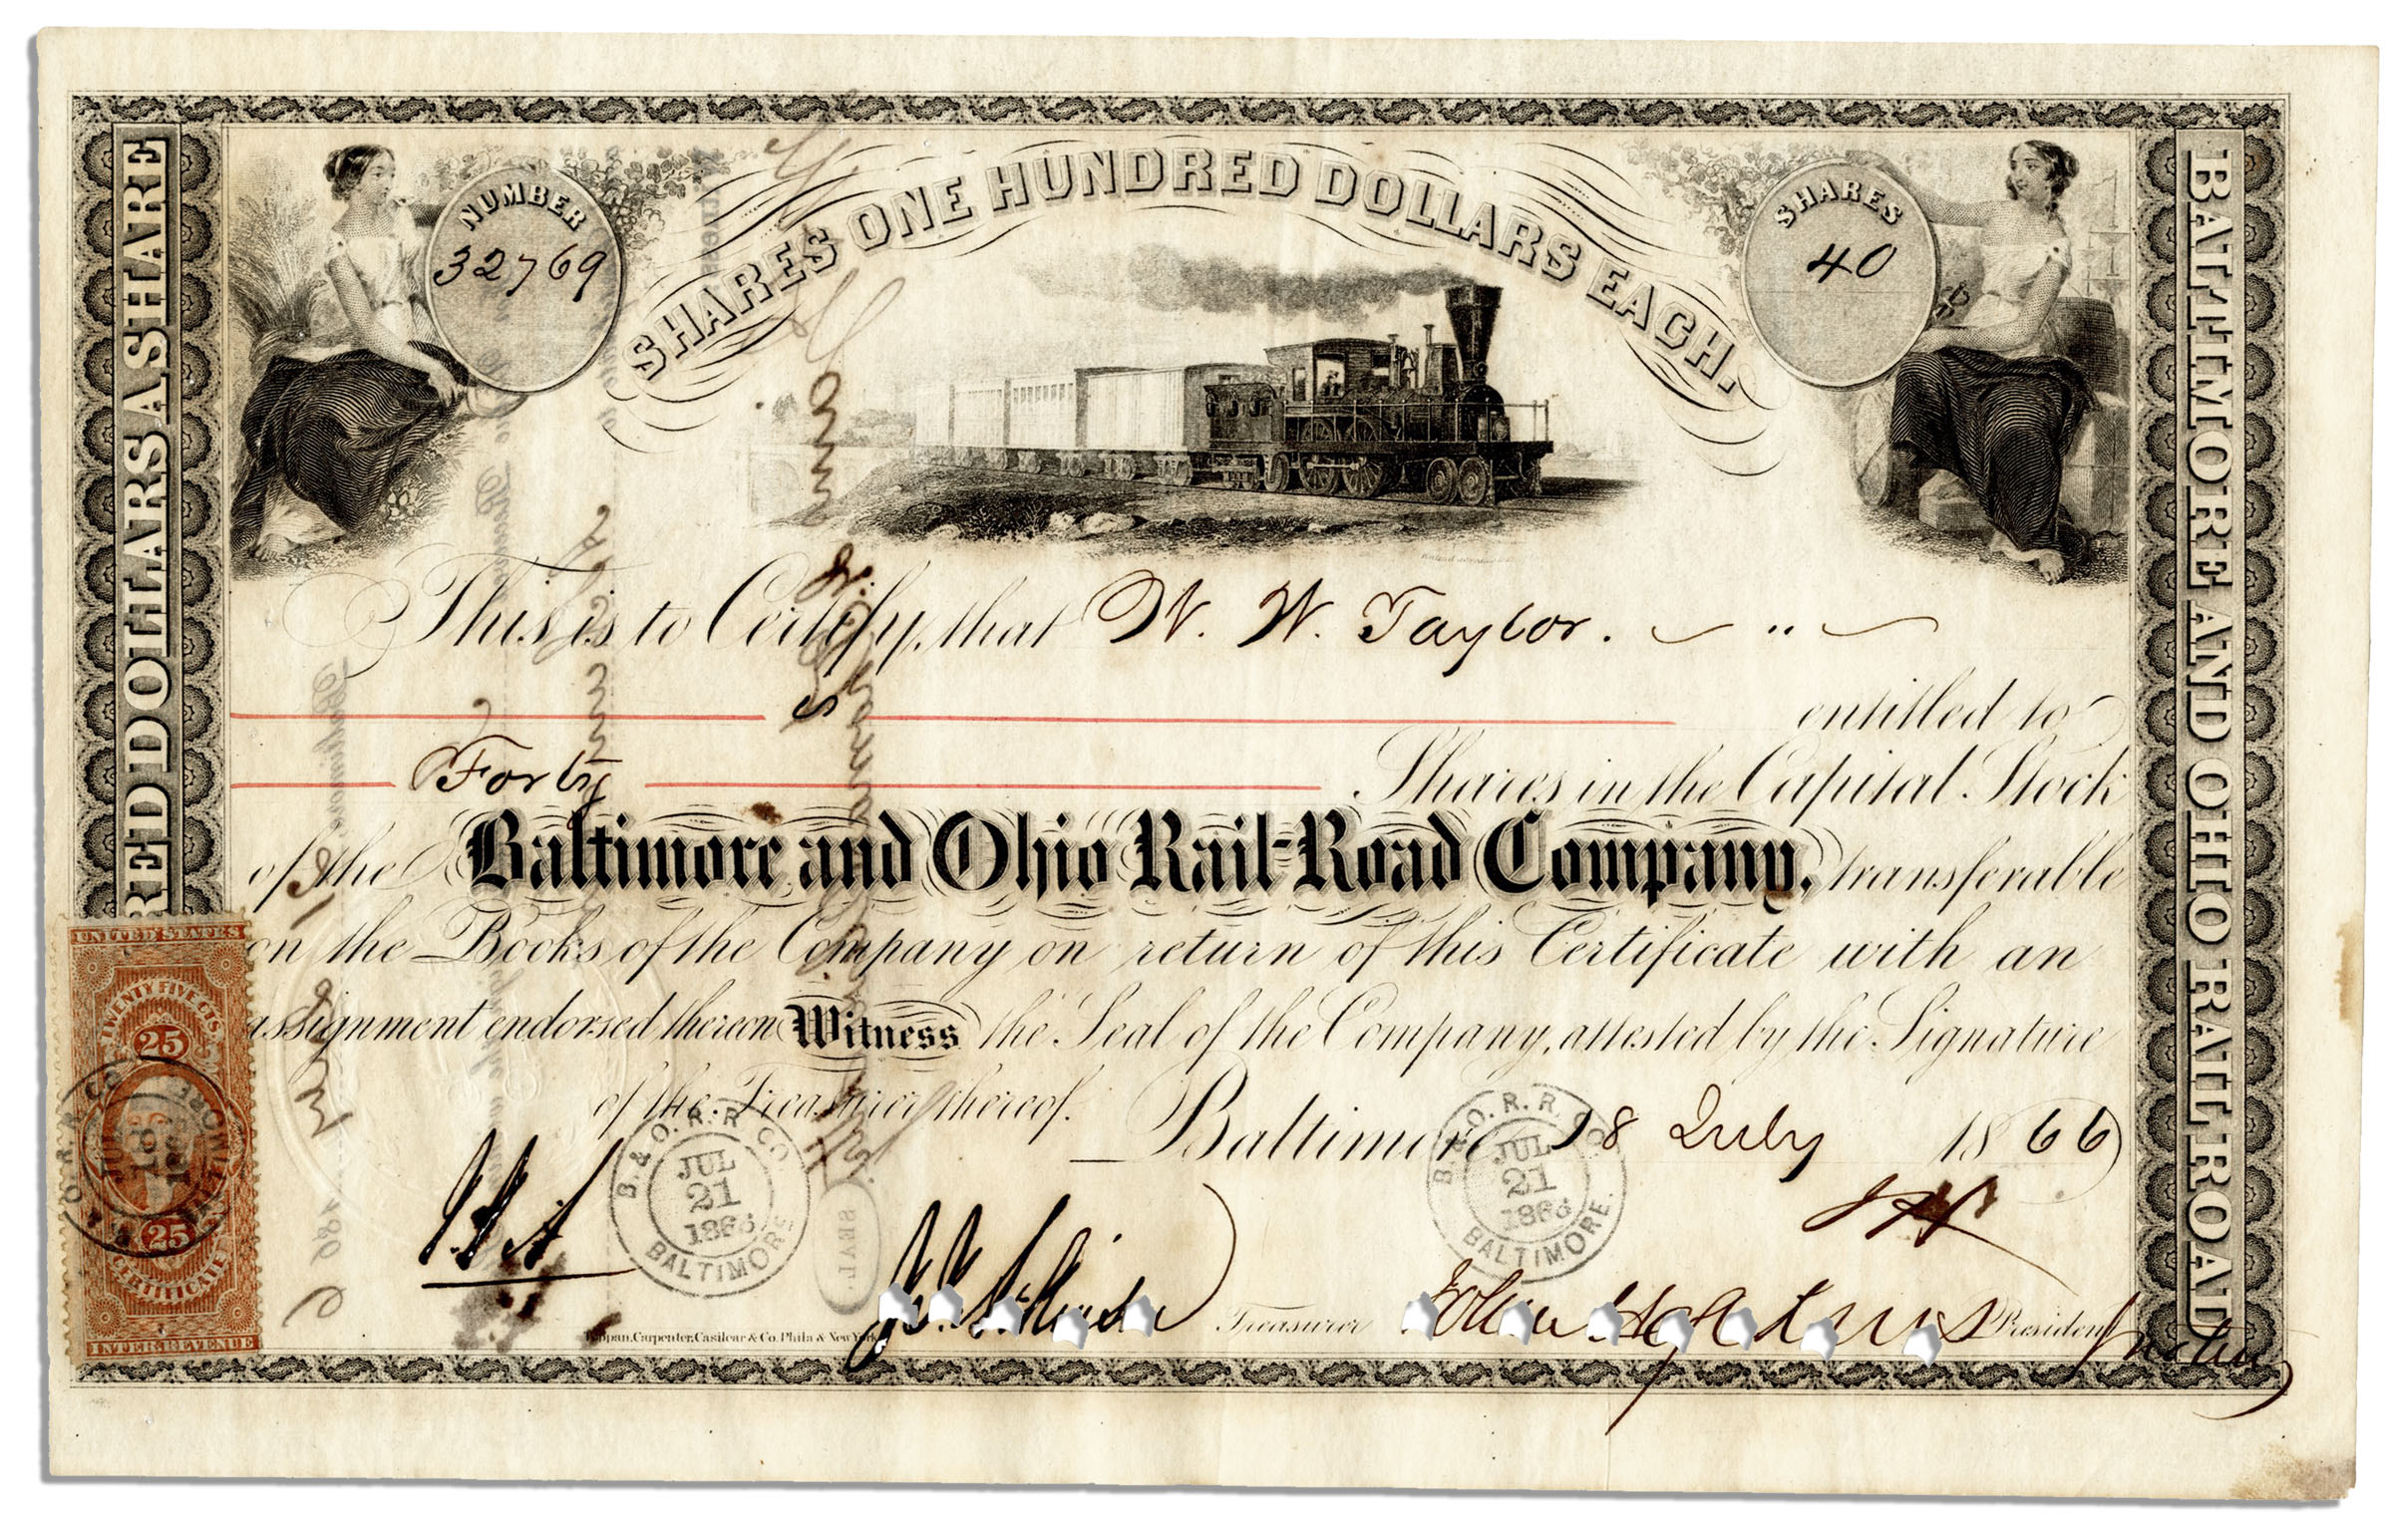 SHARES ONE HUNDRED DOLLARS EACH.
NUMBER
32769
SHARES
40
RED DOLLARS A SHARE
BALTIMORE AND OHIO RAILROAD
This is to Certify, that W. W. Taylor.
is entitled to
Forty Shares in the Capital Stock
of the Baltimore and Ohio Rail-Road Company, transferable
on the Books of the Company on return of this Certificate with an
assignment endorsed thereon Witness the Seal of the Company, attested by the Signature
of the Treasurer thereof. Baltimore 18 July 1866
UNITED STATES
TWENTY FIVE CTS
25
25
CERTIFICATE
INTER. REVENUE
JUL
18
B. & O. R. R. CO.
JUL
21
1866
BALTIMORE
B. & O. R. R. CO.
JUL
21
1866
BALTIMORE.
SEAL
Treasurer
President
Toppan, Carpenter, Casilear & Co. Phila & New York